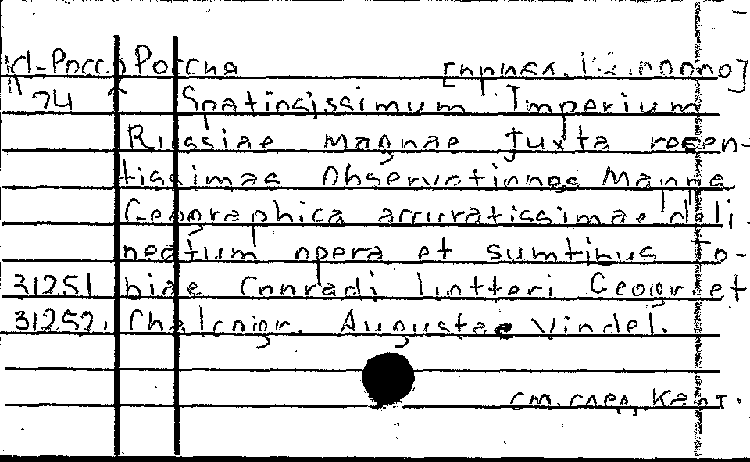 Kd-Росс. Россия [прижл.
74 Spatiosissimum Imperium
Russiae Magnae juxta recen-
tissimas Observationes Mappa
Geographica accuratissimae deli-
neatum opera et sumtibus To-
31251 biae Conradi Lotteri Geogr et
31252. Chalcogr. Augustae Vindel.
см. след. карт.